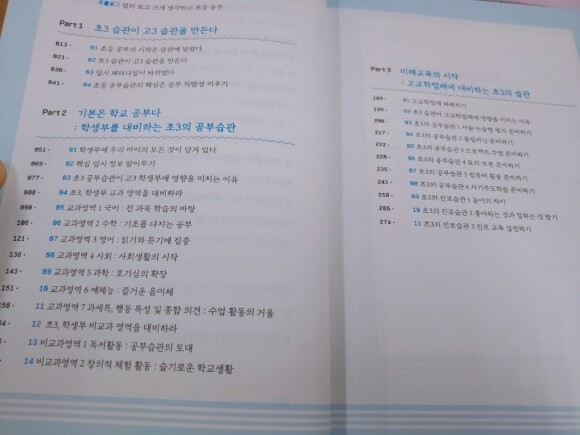 멀리 보고 크게 생각하는 초등 공부
Part 1 초3 습관이 고3 습관을 만든다
013· 01 초등 공부의 시작은 습관에 달렸다
021· 02 초3 습관이 고3 습관을 만든다
030· 03 입시 패러다임이 바뀌었다
041· 04 초등 공부습관의 핵심은 공부 자발성 키우기
Part 2 기본은 학교 공부다
: 학생부를 대비하는 초3의 공부습관
051· 01 학생부에 우리 아이의 모든 것이 담겨 있다
069· 02 핵심 입시 정보 알아두기
077· 03 초3 공부습관이 고3 학생부에 영향을 미치는 이유
088· 04 초3, 학생부 교과 영역을 대비하라
098· 05 교과영역 1 국어 : 전 과목 학습의 바탕
106· 06 교과영역 2 수학 : 기초를 다지는 공부
121· 07 교과영역 3 영어 : 읽기와 듣기에 집중
136· 08 교과영역 4 사회 : 사회생활의 시작
143· 09 교과영역 5 과학 : 호기심의 확장
151· 10 교과영역 6 예체능 : 즐거운 음미체
158· 11 교과영역 7 과세특, 행동 특성 및 종합 의견 : 수업 활동의 거울
12 초3, 학생부 비교과 영역을 대비하라
13 비교과영역 1 독서활동 : 공부습관의 토대
14 비교과영역 2 창의적 체험 활동 : 슬기로운 학교생활
Part 3 미래교육의 시작
: 고교학점제에 대비하는 초3의 습관
189· 01 고교학점제 파헤치기
199· 02 초3 습관이 고교학점제에 영향을 미치는 이유
208· 03 초3의 공부습관 1 서술·논술형 평가 준비하기
217· 04 초3의 공부습관 2 블렌디드 러닝 준비하기
222· 05 초3의 공부습관 3 프로젝트 수업 준비하기
228· 06 초3의 공부습관 4 토의·토론 준비하기
235· 07 초3의 공부습관 5 컴퓨터 활용 준비하기
241· 08 초3의 공부습관 6 자기주도학습 준비하기
258· 09 초3의 진로습관 1 놀이의 차이
265· 10 초3의 진로습관 2 좋아하는 것과 잘하는 것 찾기
274· 11 초3의 진로습관 3 진로 교육 실천하기